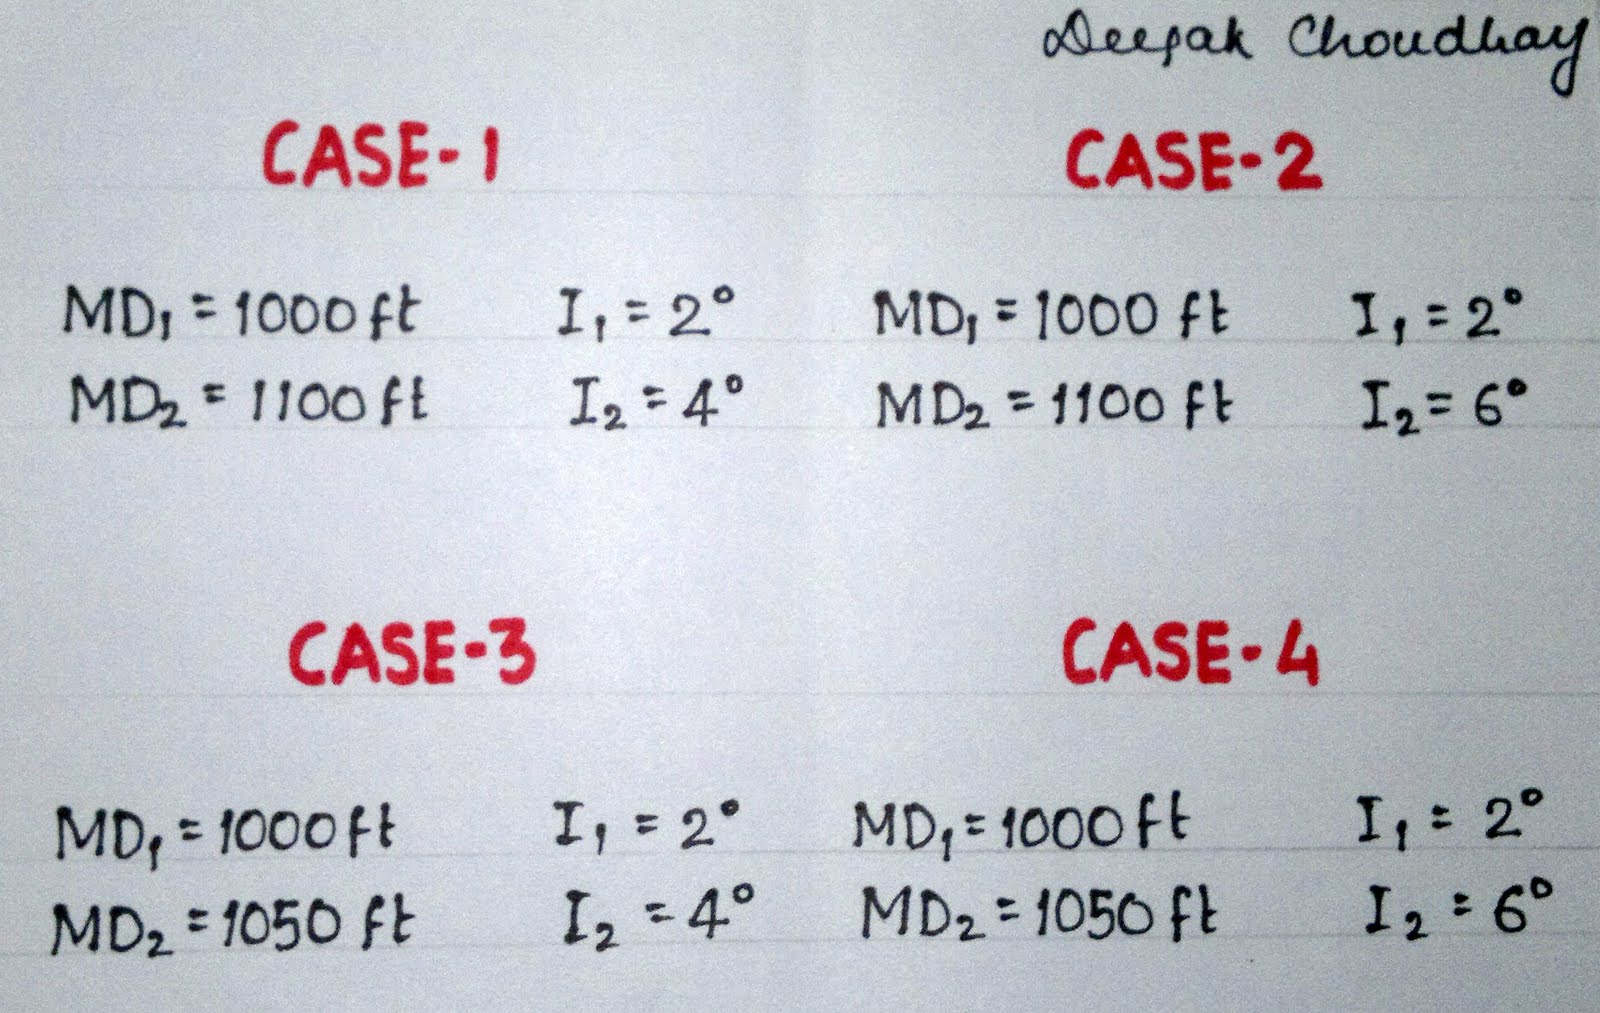 Deepak Choudhay
CASE-1
MD₁ = 1000 ft I₁ = 2°
MD₂ = 1100 ft I₂ = 4°
CASE-2
MD₁ = 1000 ft I₁ = 2°
MD₂ = 1100 ft I₂ = 6°
CASE-3
MD₁ = 1000 ft I₁ = 2°
MD₂ = 1050 ft I₂ = 4°
CASE-4
MD₁ = 1000 ft I₁ = 2°
MD₂ = 1050 ft I₂ = 6°